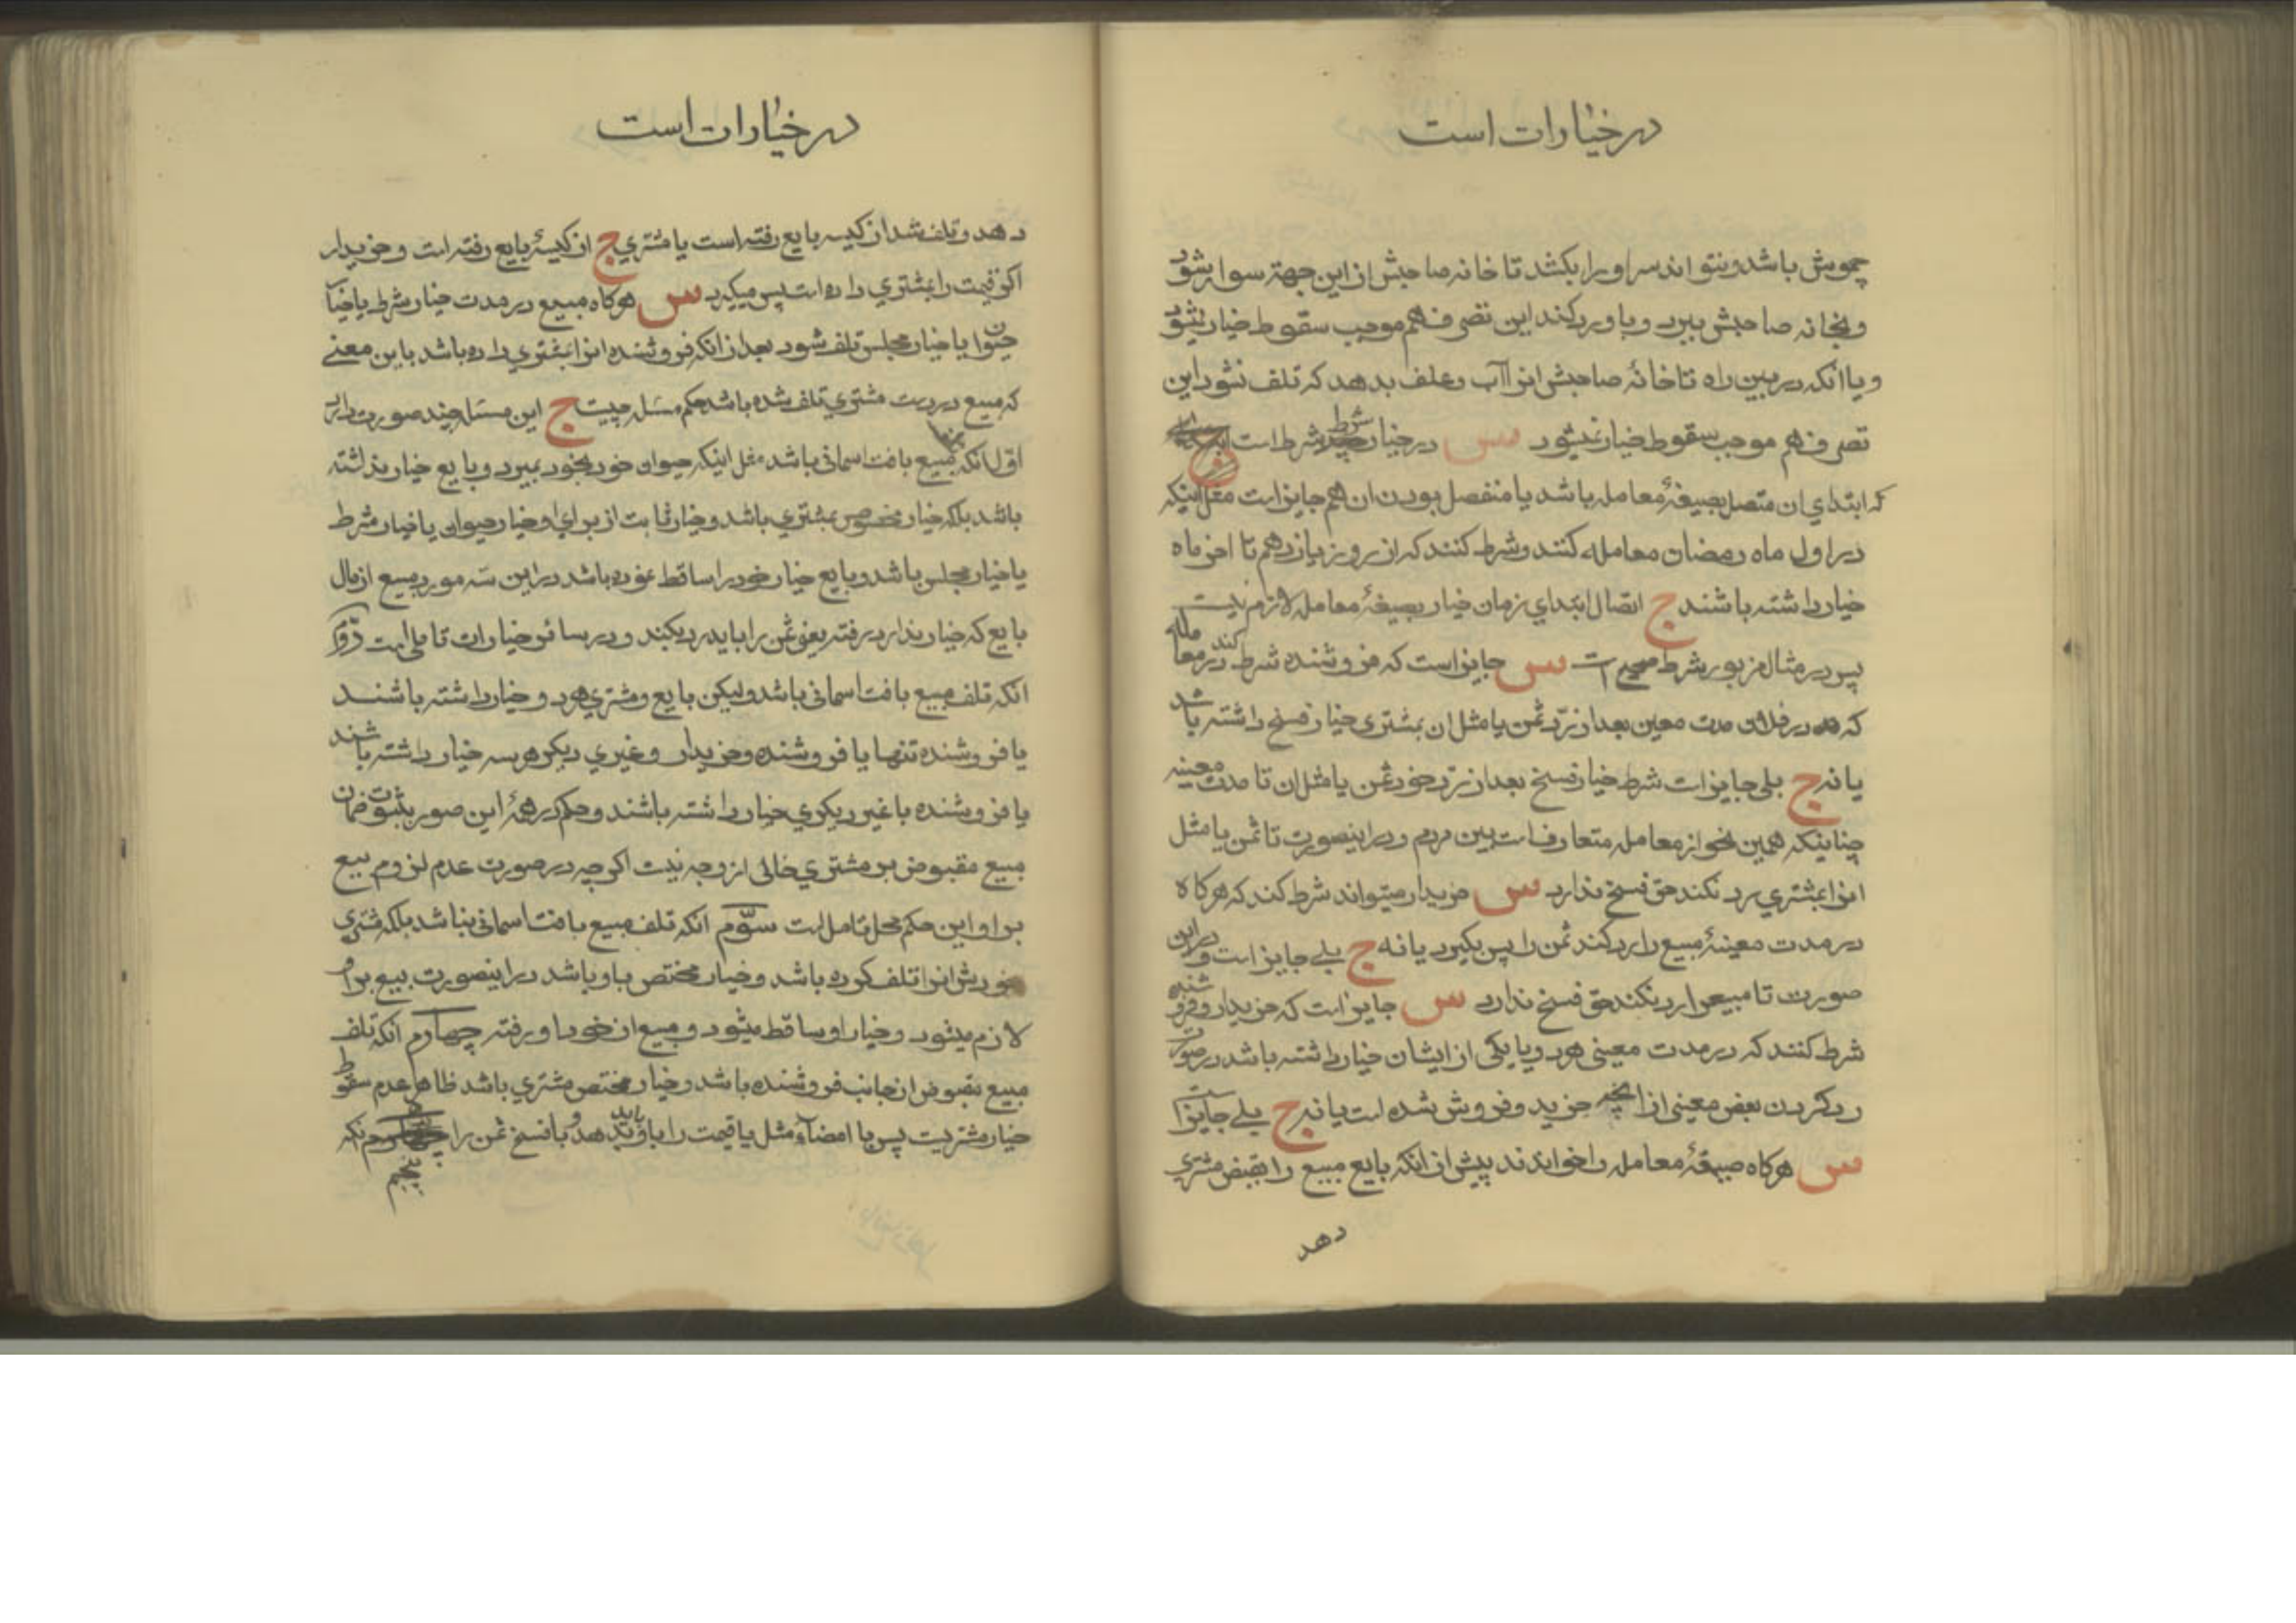 در خیارات است
چموش باشد و نتواند سر او را بکشد تا خانه صاحبش از این جهة سوار شود
و بخانه صاحبش ببرد و باو رد کند این تصرف هم موجب سقوط خیار نشود
و یا انکه در بین راه تا خانهٔ صاحبش انرا آب و علف بدهد که تلف نشود این
تصرف هم موجب سقوط خیار نمیشود س در خیار شرط شرط است
که ابتدای ان متصل بصیغهٔ معامله باشد یا منفصل بودن ان هم جایز است مثل اینکه
در اول ماه رمضان معامله کنند و شرط کنند که از روز یازدهم تا اخر ماه
خیار داشته باشند ج اتصال ابتدای زمان خیار بصیغهٔ معامله لازم نیست
پس در مثال مزبور شرط صحیح است س جایز است که فروشنده شرط کند در معامله
که در فلان مدت معین بعد از رد ثمن یا مثل ان بمشتری خیار فسخ داشته باشد
یا نه ج بلی جایز است شرط خیار فسخ بعد از رد خود ثمن یا مثل ان تا مدت معینه
چنانکه همین نحو از معامله متعارف است بین مردم و در اینصورت تا ثمن یا مثل
انرا بمشتری رد نکند حق فسخ ندارد س خریدار میتواند شرط کند که هرکاه
در مدت معینهٔ مبیع را رد کند ثمن را پس بکیرد یا نه ج بلے جایز است و در این
صورت تا مبیع را رد نکند حق فسخ ندارد س جایز است که خریدار و فروشنده
شرط کنند که در مدت معینی هر دو یا یکی از ایشان خیار داشته باشد در صورت
رد کردن بعض معینی از انچه خرید و فروش شده است یا نه ج بلے جایز است
س هرکاه صیغهٔ معامله را خواندند پیش از انکه بایع مبیع را بقبض مشتری
دهد
در خیارات است
دهد و تلف شد از کیسه بایع رفته است یا مشتری ج از کیسهٔ بایع رفته است و خریدار
اکر قیمت را بمشتری داده است پس میکیرد س هرکاه مبیع در مدت خیار شرط یا خیار
حیوان یا خیار مجلس تلف شود بعد از انکه فروشنده انرا بمشتری داده باشد باین معنے
که مبیع در دست مشتری تلف شده باشد حکم مسئله چیست ج این مسئله چند صورت دارد
اول انکه مبیع بافت اسمانی باشد مثل اینکه حیوان خود بخود بمیرد و بایع خیار نداشته
باشد بلکه خیار مخصوص بمشتری باشد و خیار ثابت از برای او خیار حیوان یا خیار شرط
یا خیار مجلس باشد و بایع خیار خود را ساقط نموده باشد در این سه مورد مبیع از مال
بایع که خیار ندارد رفته یعنی ثمن را باید رد بکند و در سائر خیارات تاملی است دوم
انکه تلف مبیع بافت اسمانی باشد ولیکن بایع و مشتری هر دو خیار داشته باشند
یا فروشنده تنها یا فروشنده و خریدار و غیری دیکر هر سه خیار داشته باشند
یا فروشنده با غیر دیکری خیار داشته باشند و حکم در همهٔ این صور بثبوت ضمان
مبیع مقبوض بر مشتری خالی از وجه نیست اکرچه در صورت عدم لزوم بیع
بر او این حکم محل تامل است سوم انکه تلف مبیع بافت اسمانی نباشد بلکه مشتری
خودش انرا تلف کرده باشد و خیار مختص باو باشد در اینصورت بیع بر او
لازم میشود و خیار او ساقط میشود و مبیع از خود او رفته چهارم انکه تلف
مبیع مقبوض از جانب فروشنده باشد و خیار مختص مشتری باشد ظاهر عدم سقوط
خیار مشتریست پس با امضاء مثل یا قیمت را باید باو بدهد و با فسخ ثمن را پنجم انکه